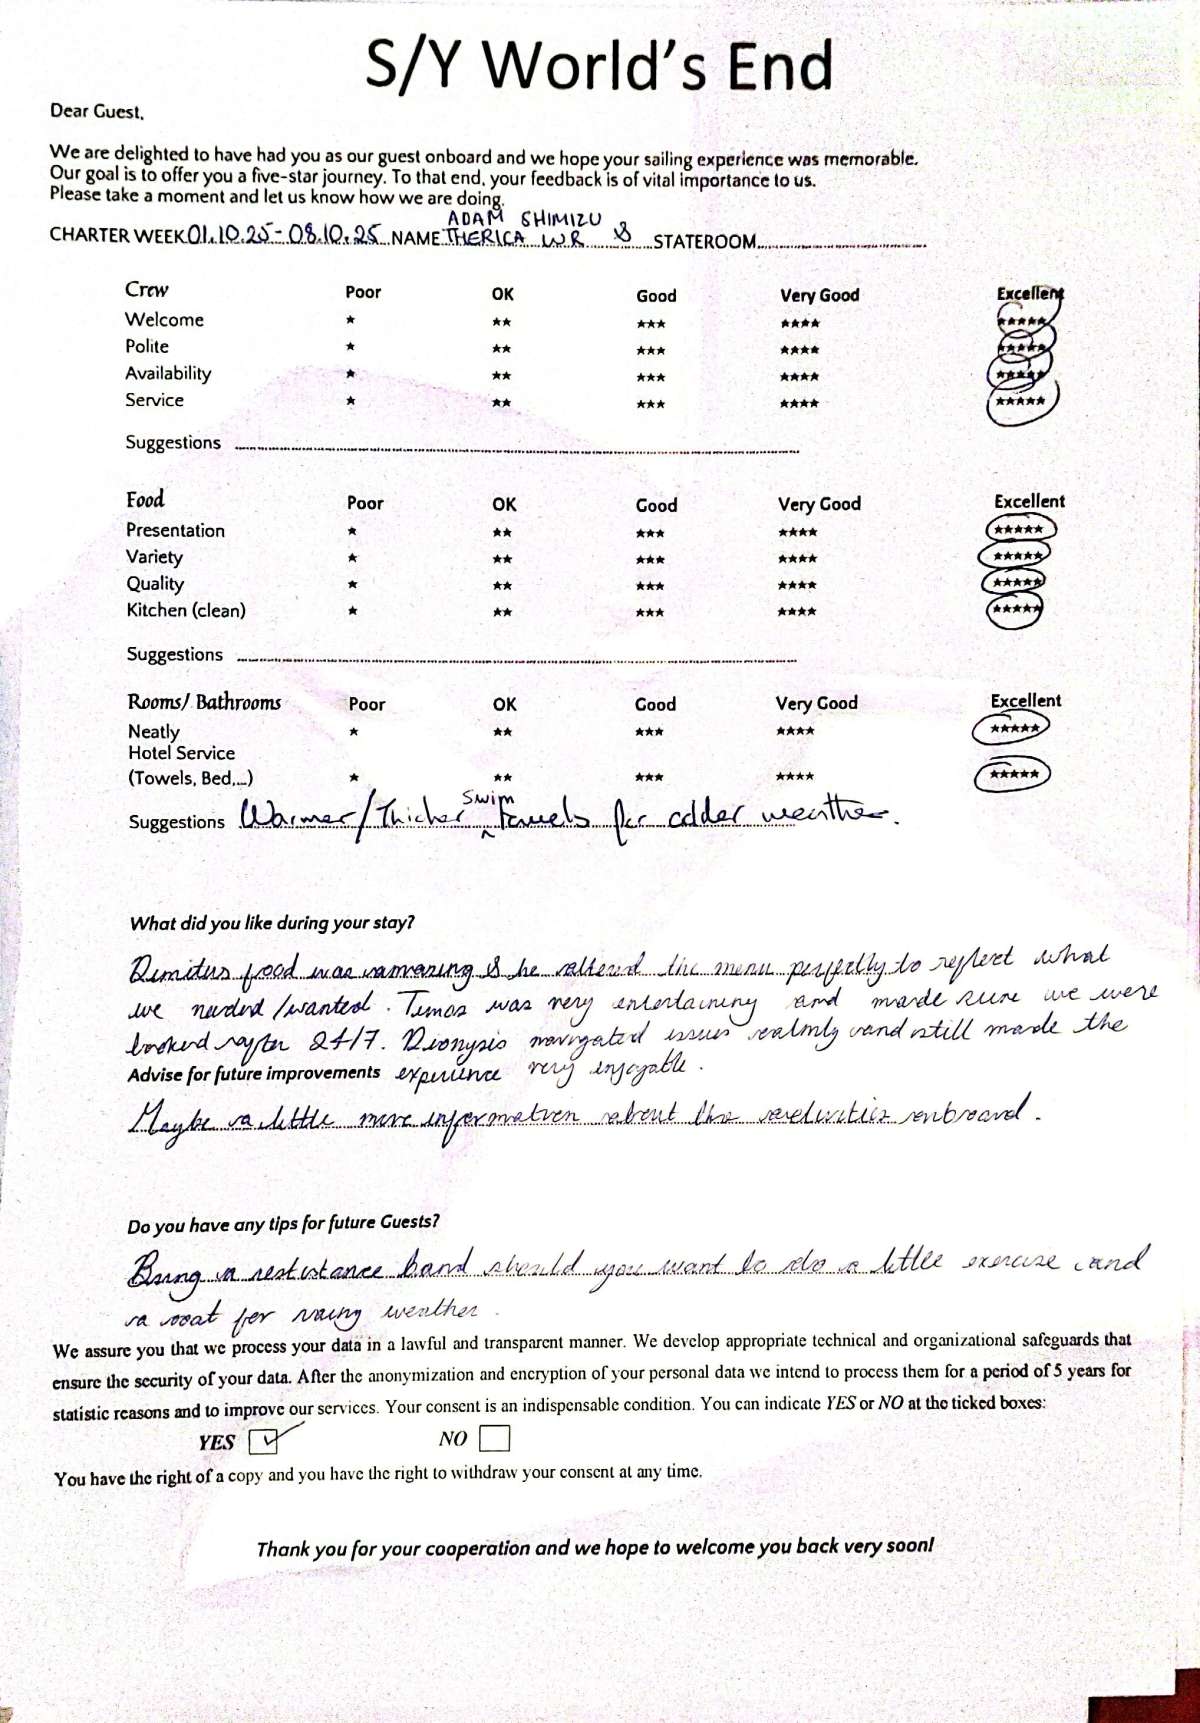 S/Y World's End
Dear Guest,
We are delighted to have had you as our guest onboard and we hope your sailing experience was memorable.
Our goal is to offer you a five-star journey. To that end, your feedback is of vital importance to us.
Please take a moment and let us know how we are doing.
ADAM SHIMIZU
CHARTER WEEK 01.10.25 - 08.10.25 NAME THERICA WR & STATEROOM
Crew Poor OK Good Very Good Excellent
Welcome ★ ★★ ★★★ ★★★★ ★★★★★
Polite ★ ★★ ★★★ ★★★★ ★★★★★
Availability ★ ★★ ★★★ ★★★★ ★★★★★
Service ★ ★★ ★★★ ★★★★ ★★★★★
Suggestions
Food Poor OK Good Very Good Excellent
Presentation ★ ★★ ★★★ ★★★★ ★★★★★
Variety ★ ★★ ★★★ ★★★★ ★★★★★
Quality ★ ★★ ★★★ ★★★★ ★★★★★
Kitchen (clean) ★ ★★ ★★★ ★★★★ ★★★★★
Suggestions
Rooms/ Bathrooms Poor OK Good Very Good Excellent
Neatly ★ ★★ ★★★ ★★★★ ★★★★★
Hotel Service
(Towels, Bed,...) ★ ★★ ★★★ ★★★★ ★★★★★
Suggestions Warmer/Thicker swim towels for colder weather.
What did you like during your stay?
food was amazing & he altered the menu perfectly to reflect what
we needed/wanted. was very entertaining and made sure we were
looked after 24/7. Dionysis navigated issues calmly and still made the
Advise for future improvements experience very enjoyable.
Maybe a little more information about the activities onboard.
Do you have any tips for future Guests?
Bring a resistance band should you want to do a little exercise and
a coat for rainy weather.
We assure you that we process your data in a lawful and transparent manner. We develop appropriate technical and organizational safeguards that
ensure the security of your data. After the anonymization and encryption of your personal data we intend to process them for a period of 5 years for
statistic reasons and to improve our services. Your consent is an indispensable condition. You can indicate YES or NO at the ticked boxes:
YES ✓ NO
You have the right of a copy and you have the right to withdraw your consent at any time.
Thank you for your cooperation and we hope to welcome you back very soon!